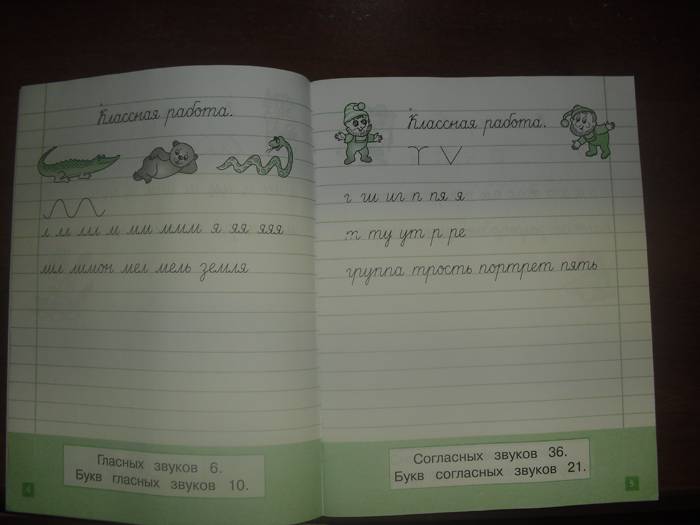 Классная работа.
л м лл м мм ммм я яя яяя
лимон мел мель земля
Гласных звуков 6.
Букв гласных звуков 10.
4
Классная работа.
г ш иг п пя я
т ту ут р ре
группа трость портрет пять
Согласных звуков 36.
Букв согласных звуков 21.
5